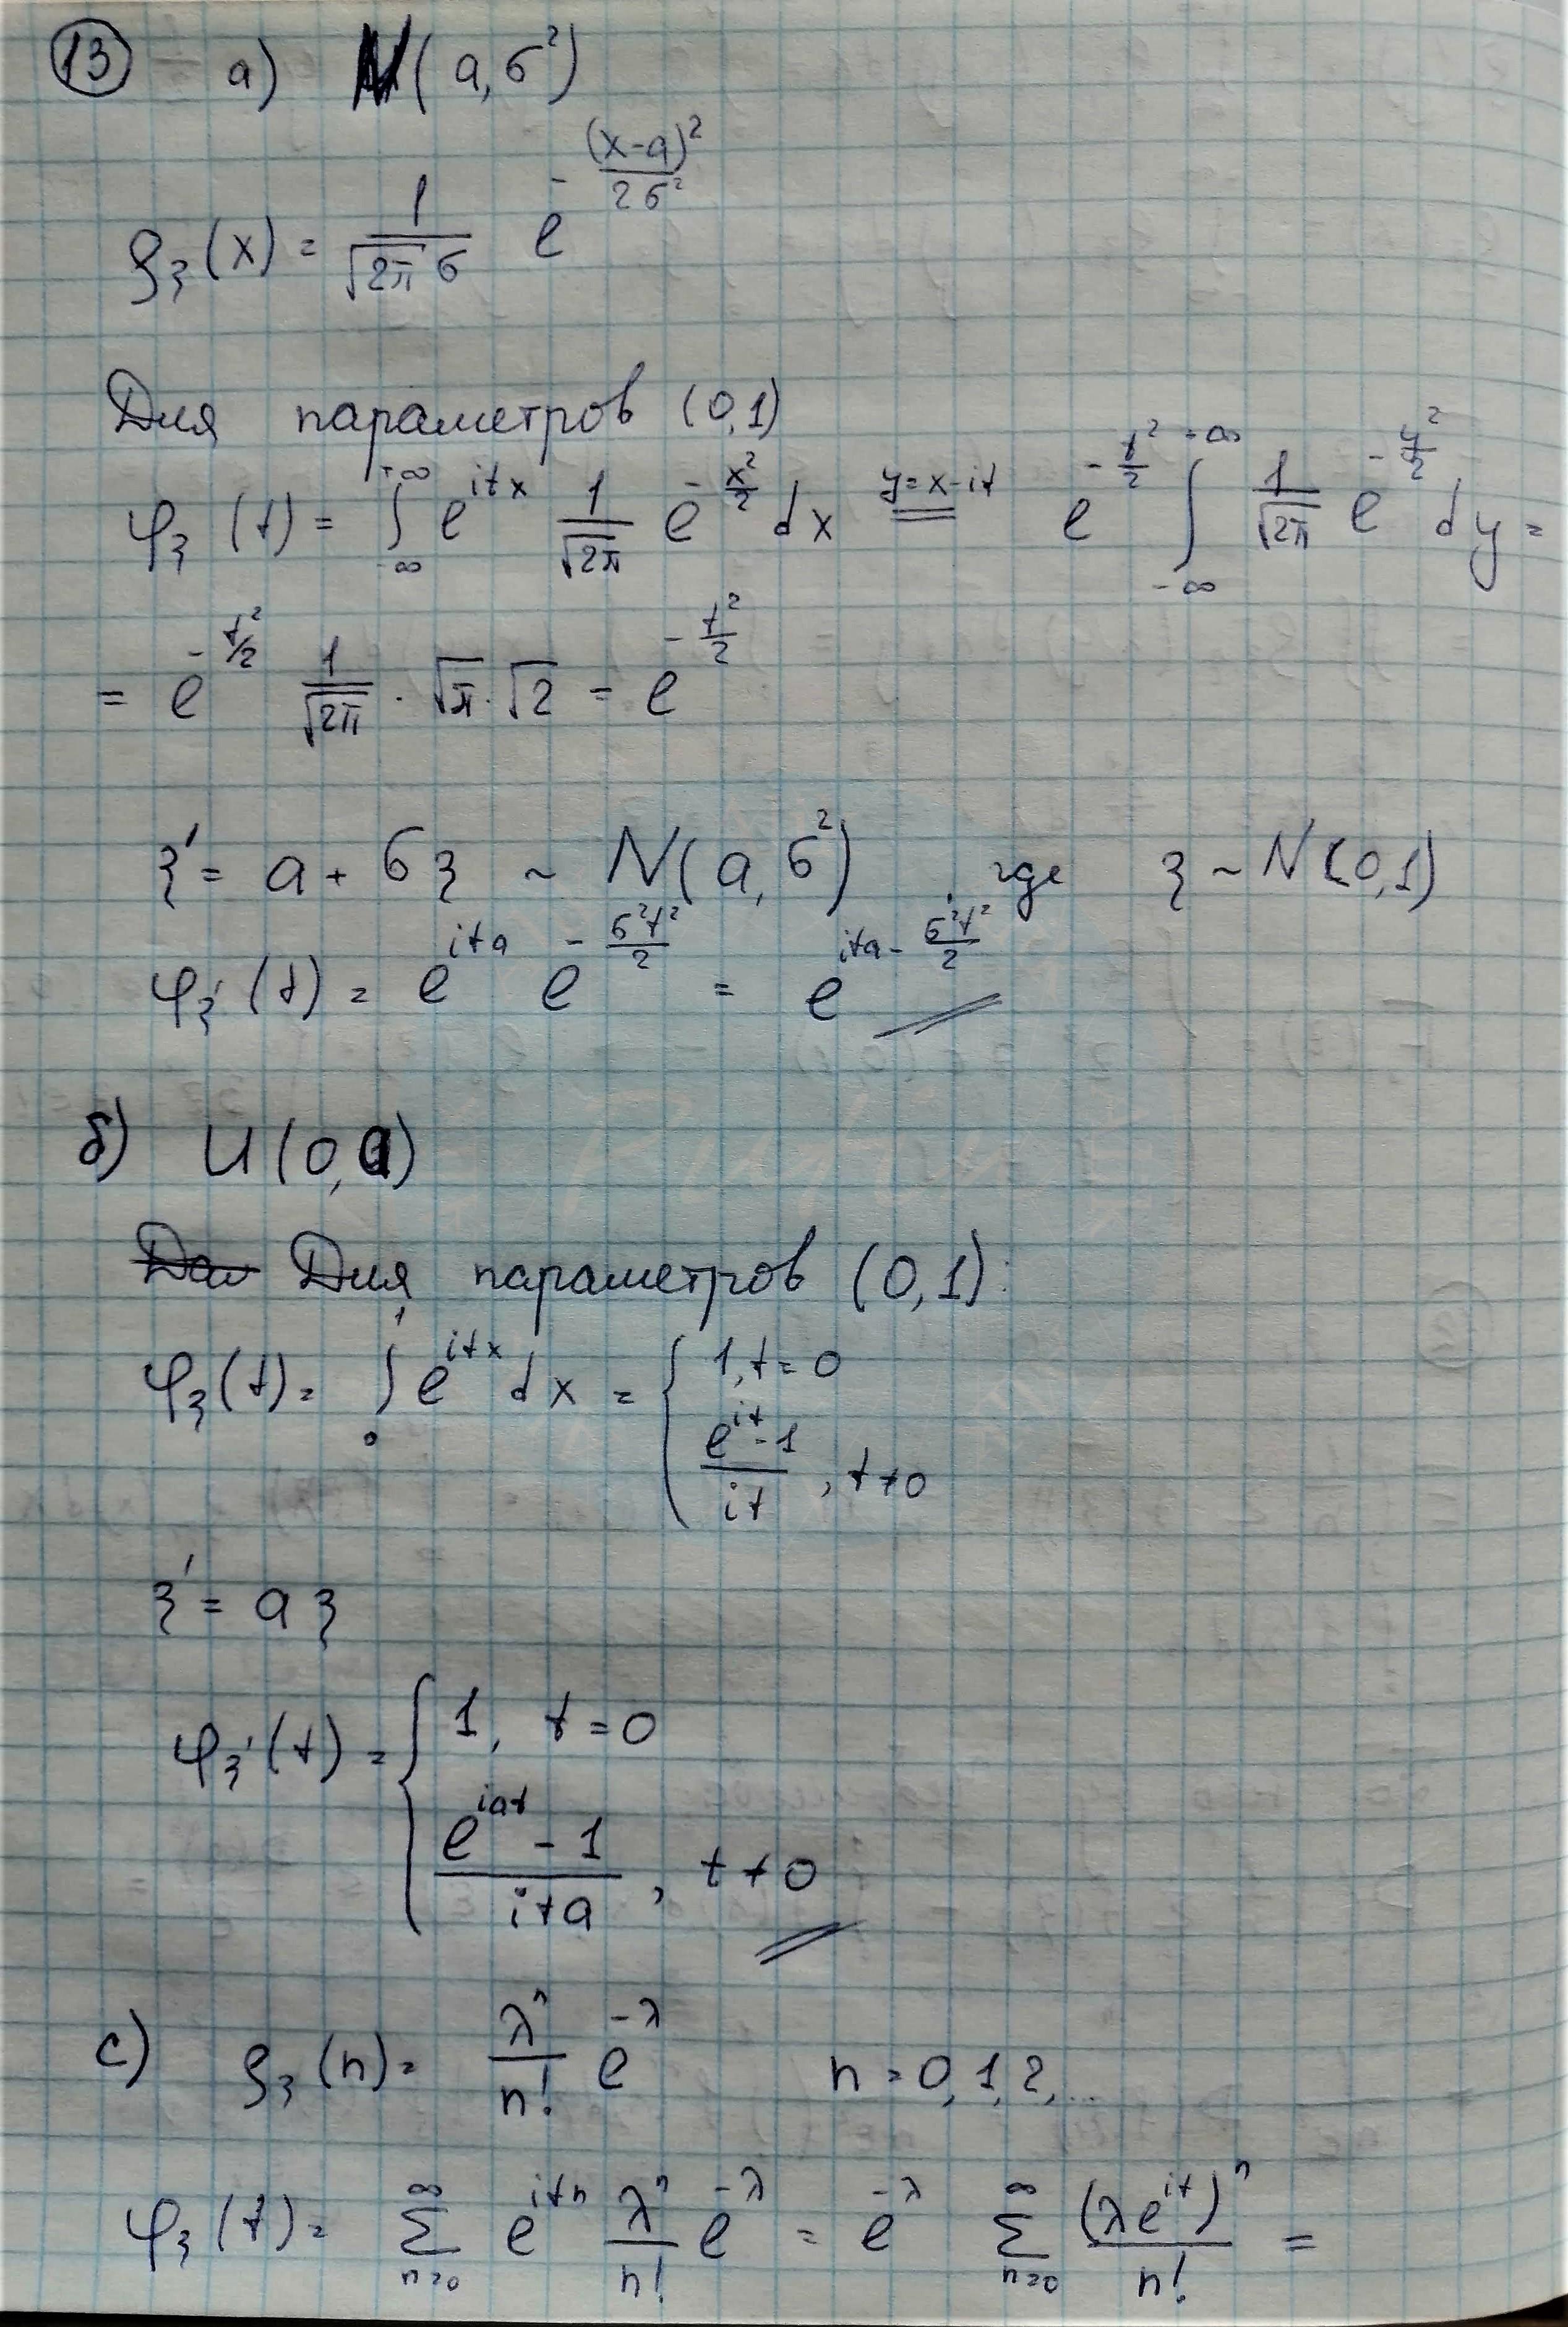 13 а) N(a, σ²)
ρ_ξ(x) = 1/(√(2π) σ) e^(-(x-a)²/(2σ²))
Для параметров (0,1)
φ_ξ(t) = ∫_{-∞}^{+∞} e^(itx) 1/√(2π) e^(-x²/2) dx =(y=x-it)= e^(-t²/2) ∫_{-∞}^{+∞} 1/√(2π) e^(-y²/2) dy =
= e^(-t²/2) 1/√(2π) · √π · √2 = e^(-t²/2)
ξ' = a + σξ ~ N(a, σ²), где ξ ~ N(0,1)
φ_ξ'(t) = e^(ita) e^(-σ²t²/2) = e^(ita - σ²t²/2)
б) U(0,a)
Для параметров (0,1):
φ_ξ(t) = ∫_0^1 e^(itx) dx = { 1, t=0
(e^(it)-1)/(it), t≠0
ξ' = aξ
φ_ξ'(t) = { 1, t=0
(e^(iat)-1)/(ita), t≠0
c) ρ_ξ(n) = λ^n/n! e^(-λ) n = 0,1,2,...
φ_ξ(t) = ∑_{n=0}^∞ e^(itn) λ^n/n! e^(-λ) = e^(-λ) ∑_{n=0}^∞ (λe^(it))^n/n! =